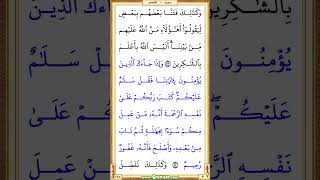 وَكَذَٰلِكَ فَتَنَّا بَعْضَهُم بِبَعْضٍ
لِّيَقُولُوٓا۟ أَهَٰٓؤُلَآءِ مَنَّ ٱللَّهُ عَلَيْهِم
مِّنۢ بَيْنِنَآ أَلَيْسَ ٱللَّهُ بِأَعْلَمَ
بِٱلشَّٰكِرِينَ ۝ وَإِذَا جَآءَكَ ٱلَّذِينَ
يُؤْمِنُونَ بِـَٔايَٰتِنَا فَقُلْ سَلَٰمٌ
عَلَيْكُمْ ۖ كَتَبَ رَبُّكُمْ عَلَىٰ
نَفْسِهِ ٱلرَّحْمَةَ ۖ أَنَّهُۥ مَنْ عَمِلَ
مِنكُمْ سُوٓءًۢا بِجَهَٰلَةٍ ثُمَّ تَابَ
مِنۢ بَعْدِهِۦ وَأَصْلَحَ فَأَنَّهُۥ غَفُورٌ
رَّحِيمٌ ۝ وَكَذَٰلِكَ نُفَصِّلُ